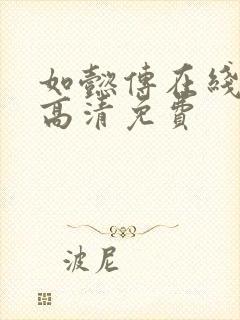 如懿傳在綫
高清免費
波尼